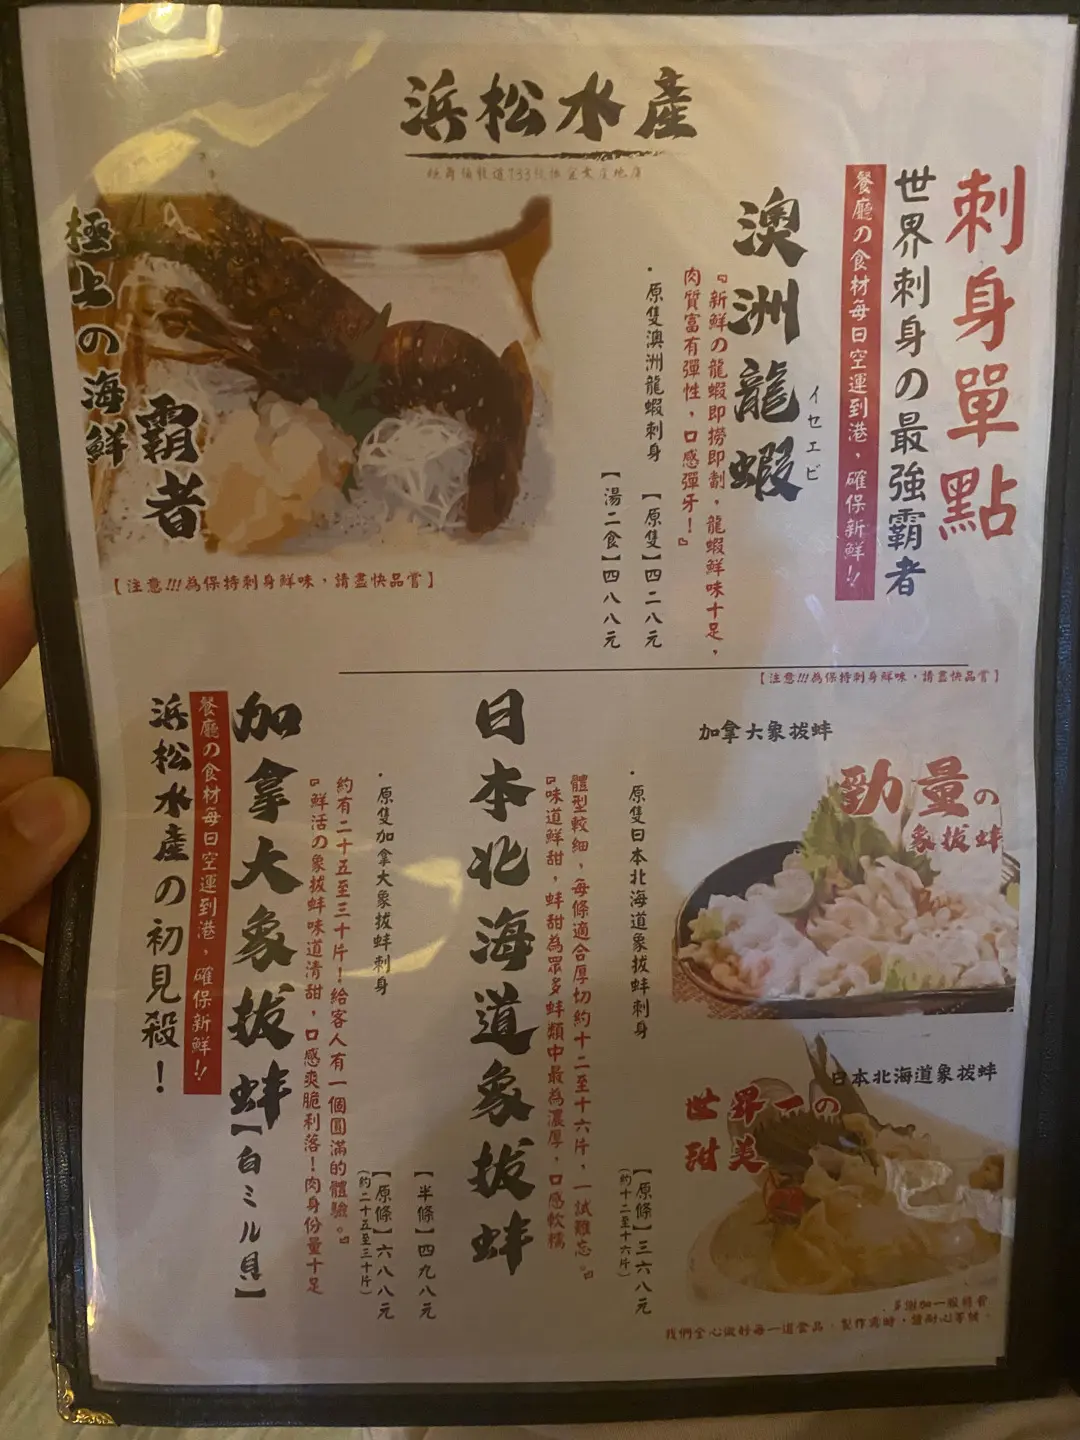 浜松水產
刺身單點
世界刺身の最強霸者
餐廳の食材每日空運到港，確保新鮮!!
澳洲龍蝦
イセエビ
『新鮮の龍蝦即撈即劏，龍蝦鮮味十足，
肉質富有彈性，口感彈牙！』
·原隻澳洲龍蝦刺身
【原隻】四二八元
【湯二食】四八八元
極上の海鮮
霸者
【注意!!!為保持刺身鮮味，請盡快品嘗】
【注意!!!為保持刺身鮮味，請盡快品嘗】
加拿大象拔蚌
勁量の
象拔蚌
日本北海道象拔蚌
世界一の
甜美
·原隻日本北海道象拔蚌刺身
【原條】三六八元
(約十二至十六片)
體型較細，每條適合厚切約十二至十六片，一試難忘。』
『味道鮮甜，蚌甜為眾多蚌類中最為濃厚，口感軟糯
日本北海道象拔蚌
【半條】四九八元
·原隻加拿大象拔蚌刺身
【原條】六八八元
(約二十五至三十片)
約有二十五至三十片！給客人有一個圓滿的體驗。』
『鮮活の象拔蚌味道清甜，口感爽脆利落！肉身份量十足
加拿大象拔蚌【白ミル貝】
餐廳の食材每日空運到港，確保新鮮!!
浜松水產の初見殺！
我們全心做好每一道食品，製作需時，請耐心等候。